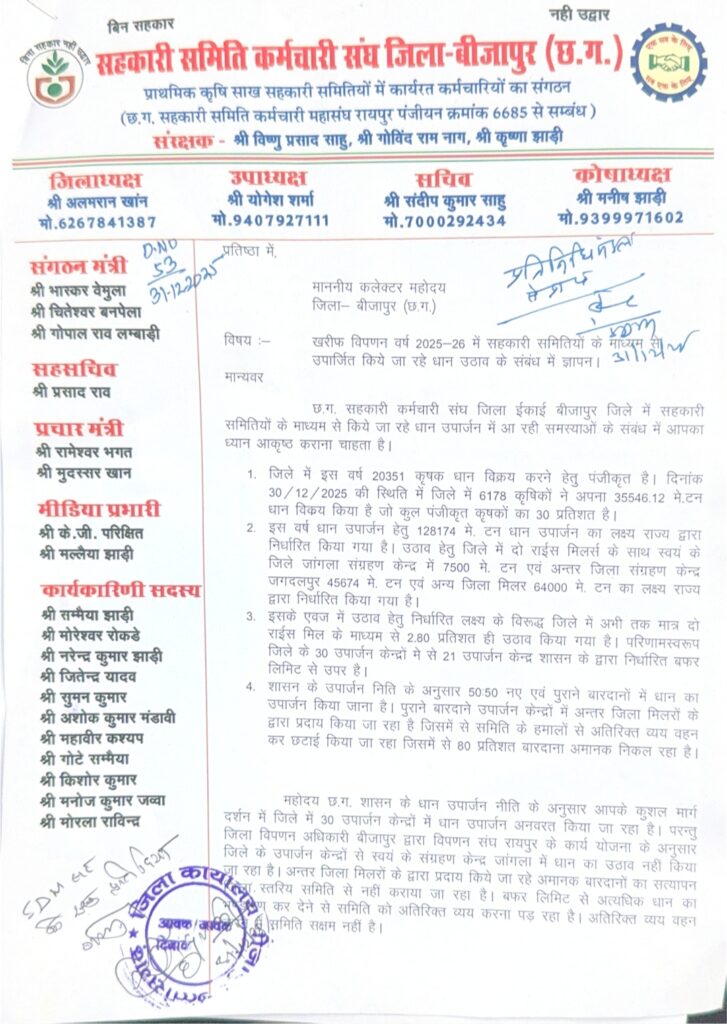 बिन सहकार
नही उद्वार
बिना सहकार नही उद्वार
एक सब के लिए
सब एक के लिए
सहकारी समिति कर्मचारी संघ जिला-बीजापुर (छ.ग.)
प्राथमिक कृषि साख सहकारी समितियों में कार्यरत कर्मचारियों का संगठन
(छ.ग. सहकारी समिति कर्मचारी महासंघ रायपुर पंजीयन क्रमांक 6685 से सम्बंध)
संरक्षक - श्री विष्णु प्रसाद साहु, श्री गोविंद राम नाग, श्री कृष्णा झाड़ी
जिलाध्यक्ष
श्री अलमरान खांन
मो.6267841387
उपाध्यक्ष
श्री योगेश शर्मा
मो.9407927111
सचिव
श्री संदीप कुमार साहु
मो.7000292434
कोषाध्यक्ष
श्री मनीष झाड़ी
मो.9399971602
D.NO
53
31-12-2025
संगठन मंत्री
श्री भास्कर वेमुला
श्री चितेश्वर बनपेला
श्री गोपाल राव लम्बाड़ी
सहसचिव
श्री प्रसाद राव
प्रचार मंत्री
श्री रामेश्वर भगत
श्री मुदस्सर खान
मीडिया प्रभारी
श्री के.जी. परिक्षित
श्री मल्लैया झाड़ी
कार्यकारिणी सदस्य
श्री सम्मैया झाड़ी
श्री मोरेश्वर रोकडे
श्री नरेन्द्र कुमार झाड़ी
श्री जितेन्द्र यादव
श्री सुमन कुमार
श्री अशोक कुमार मंडावी
श्री महावीर कश्यप
श्री गोटे सम्मैया
श्री किशोर कुमार
श्री मनोज कुमार जव्वा
श्री मोरला राविन्द्र
प्रतिष्ठा में,
माननीय कलेक्टर महोदय
जिला– बीजापुर (छ.ग.)
SDM
विषय :– खरीफ विपणन वर्ष 2025–26 में सहकारी समितियों के माध्यम से
उपार्जित किये जा रहे धान उठाव के संबंध में ज्ञापन।
मान्यवर
छ.ग. सहकारी कर्मचारी संघ जिला ईकाई बीजापुर जिले में सहकारी
समितियों के माध्यम से किये जा रहे धान उपार्जन में आ रही समस्याओं के संबंध में आपका
ध्यान आकृष्ठ कराना चाहता है।
1. जिले में इस वर्ष 20351 कृषक धान विक्रय करने हेतु पंजीकृत है। दिनांक
30/12/2025 की स्थिति में जिले में 6178 कृषिकों ने अपना 35546.12 मे.टन
धान विकय किया है जो कुल पंजीकृत कृषकों का 30 प्रतिशत है।
2. इस वर्ष धान उपार्जन हेतु 128174 मे. टन धान उपार्जन का लक्ष्य राज्य द्वारा
निर्धारित किया गया है। उठाव हेतु जिले में दो राईस मिलर्स के साथ स्वयं के
जिले जांगला संग्रहण केन्द्र में 7500 मे. टन एवं अन्तर जिला संग्रहण केन्द्र
जगदलपुर 45674 मे. टन एवं अन्य जिला मिलर 64000 मे. टन का लक्ष्य राज्य
द्वारा निर्धारित किया गया है।
3. इसके एवज में उठाव हेतु निर्धारित लक्ष्य के विरूद्ध जिले में अभी तक मात्र दो
राईस मिल के माध्यम से 2.80 प्रतिशत ही उठाव किया गया है। परिणामस्वरूप
जिले के 30 उपार्जन केन्द्रों मे से 21 उपार्जन केन्द्र शासन के द्वारा निर्धारित बफर
लिमिट से उपर है।
4. शासन के उपार्जन निति के अनुसार 50:50 नए एवं पुराने बारदानों में धान का
उपार्जन किया जाना है। पुराने बारदाने उपार्जन केन्द्रों में अन्तर जिला मिलरों के
द्वारा प्रदाय किया जा रहा है जिसमें से समिति के हमालों से अतिरिक्त व्यय वहन
कर छटाई किया जा रहा जिसमें से 80 प्रतिशत बारदाना अमानक निकल रहा है।
महोदय छ.ग. शासन के धान उपार्जन नीति के अनुसार आपके कुशल मार्ग
दर्शन में जिले में 30 उपार्जन केन्द्रों में धान उपार्जन अनवरत किया जा रहा है। परन्तु
जिला विपणन अधिकारी बीजापुर द्वारा विपणन संघ रायपुर के कार्य योजना के अनुसार
जिले के उपार्जन केन्द्रों से स्वयं के संग्रहण केन्द्र जांगला में धान का उठाव नहीं किया
जा रहा है। अन्तर जिला मिलरों के द्वारा प्रदाय किये जा रहे अमानक बारदानों का सत्यापन
स्तरिय समिति से नहीं कराया जा रहा है। बफर लिमिट से अत्यधिक धान का
कर देने से समिति को अतिरिक्त व्यय करना पड़ रहा है। अतिरिक्त व्यय वहन
समिति सक्षम नहीं है।
SDM
जिला कार्यालय
आवक/जावक
दिनांक